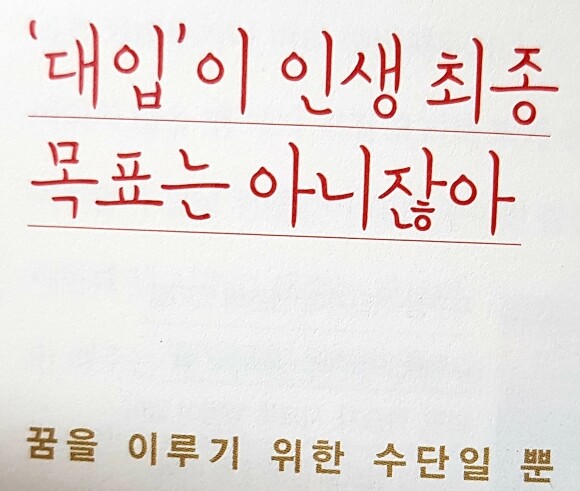 '대입'이 인생 최종
목표는 아니잖아
꿈을 이루기 위한 수단일 뿐